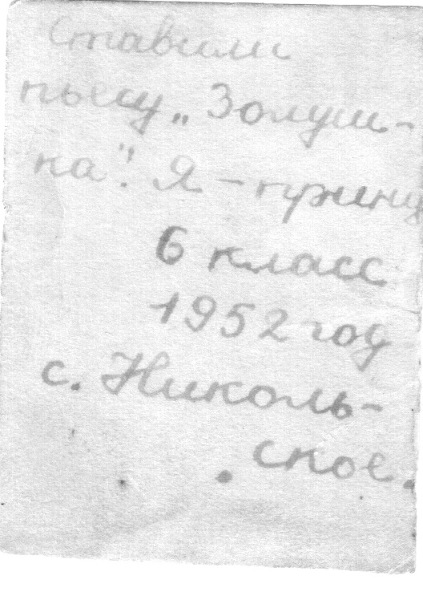 Ставили
пьесу „Золуш-
ка". Я – принц
6 класс
1952 год
с. Николь-
ское.